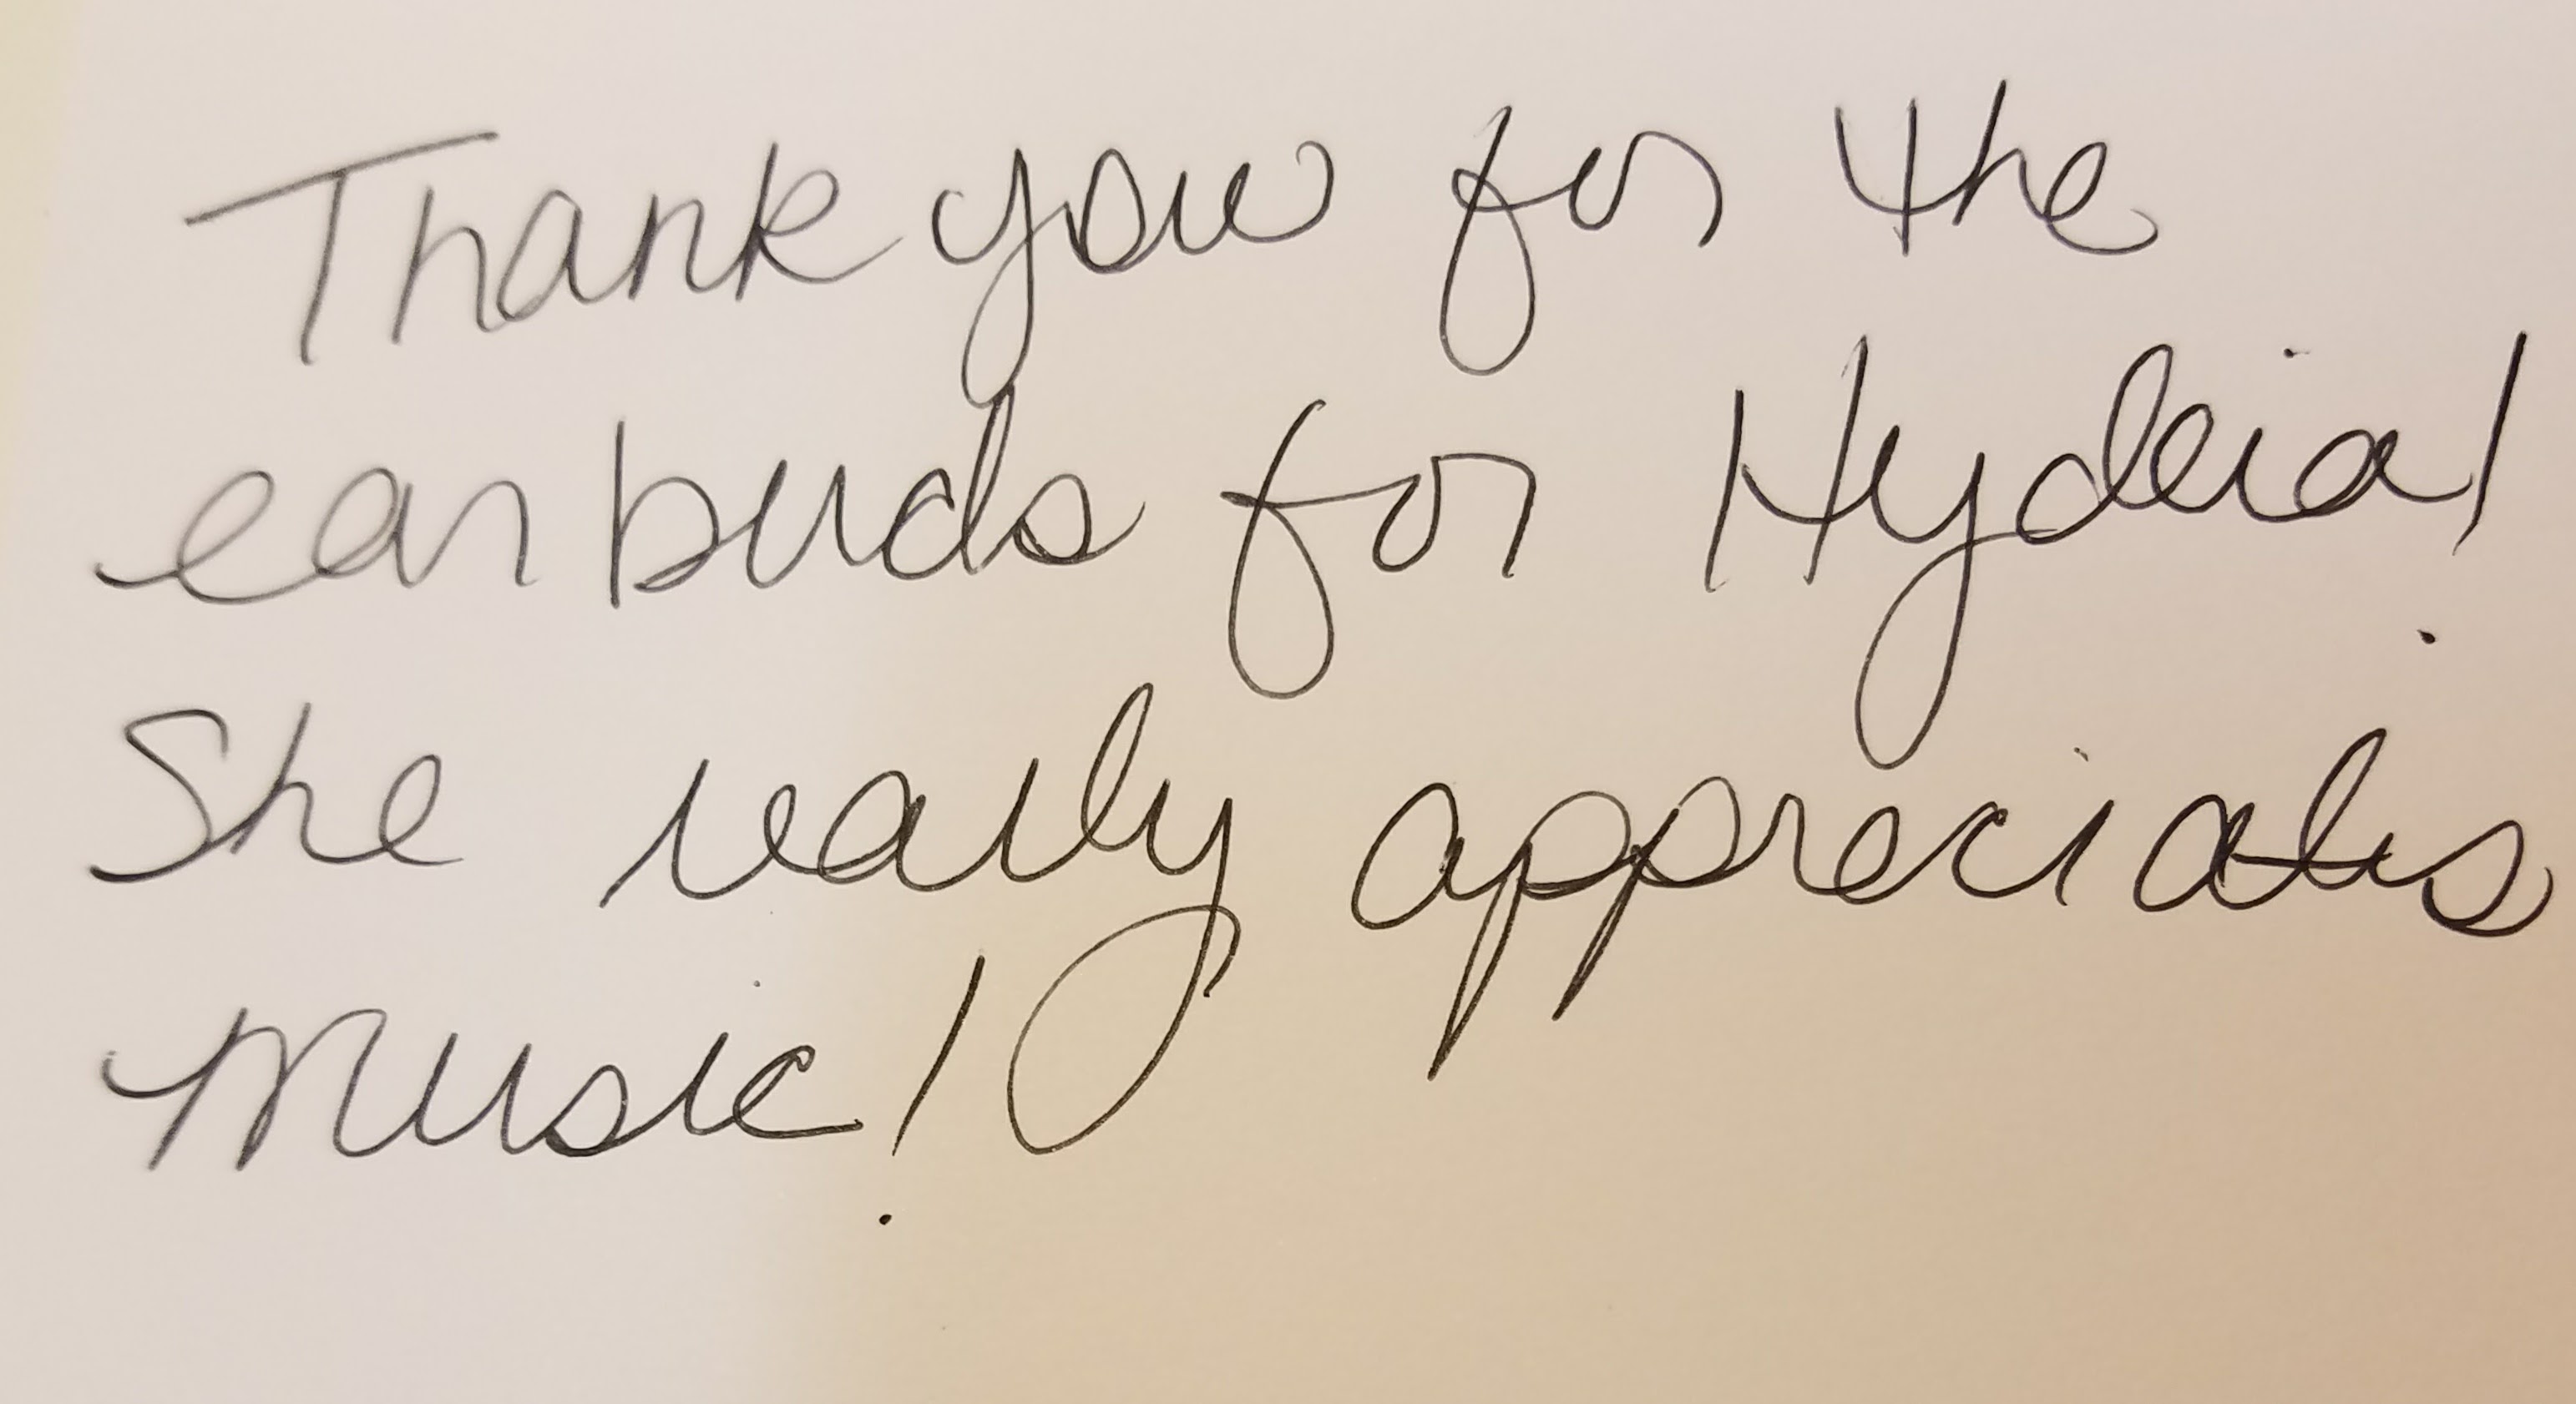 Thank you for the
earbuds for Hydeia!
She really appreciates
music!